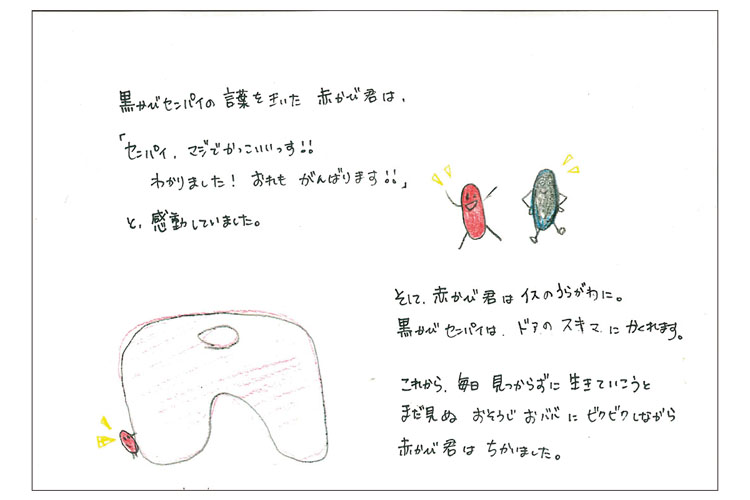 黒かびセンパイの言葉をきいた 赤かび君は、
「センパイ、マジでかっこいいっす!!
わかりました! おれも がんばります!!」
と、感動していました。
そして、赤かび君は イスのうらがわに。
黒かびセンパイは、ドアの スキマ に かくれます。
これから、毎日 見つからずに 生きていこうと
まだ見ぬ おそうじ おババ に ビクビクしながら
赤かび君は ちかいました。